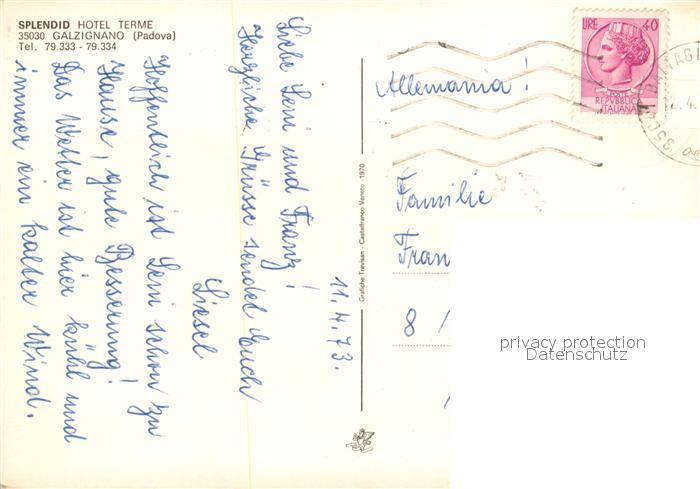 SPLENDID HOTEL TERME
35030 GALZIGNANO (Padova)
Tel. 79.333 - 79.334
11.4.73.
Liebe Leni und Franz!
Herzliche Grüsse sendet Euch
Liesel
Hoffentlich ist Leni schon zu
Hause, gute Besserung!
Das Wetter ist hier kühl und
immer ein kalter Wind.
Grafiche Trevisan - Castelfranco Veneto - 1970
LIRE 40
POSTE
REPVBBLICA
ITALIANA
Allemania!
Familie
Fran
8
privacy protection
Datenschutz